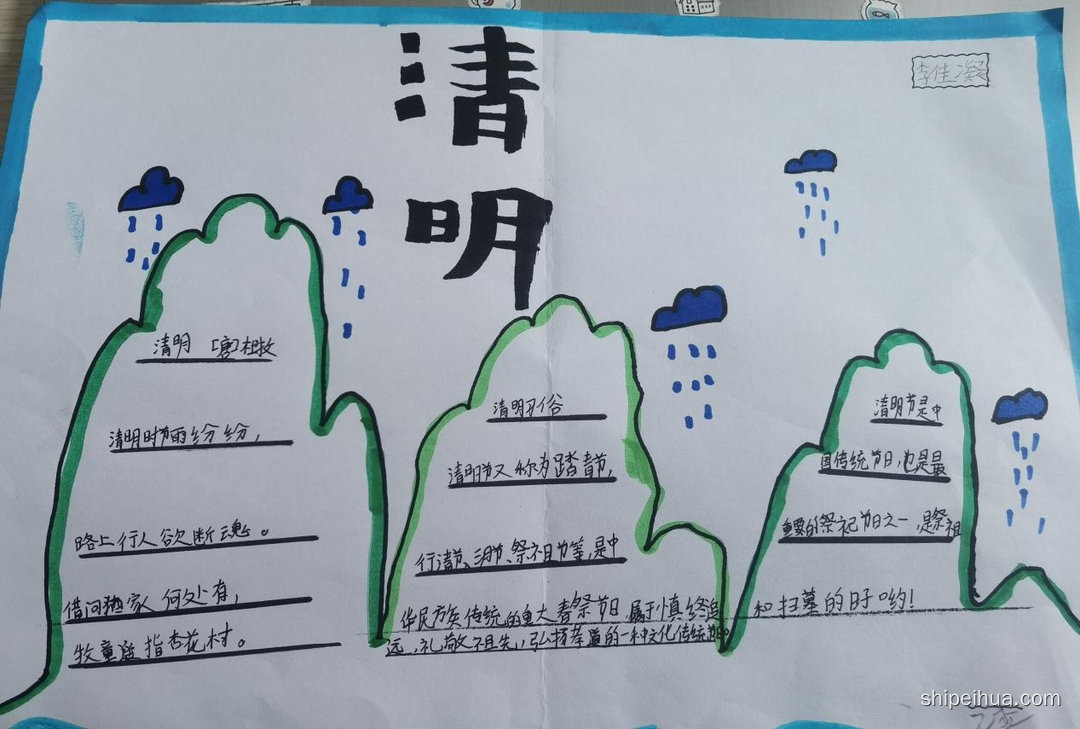 清
明
李佳凝
清明 [唐]杜牧
清明时节雨纷纷，
路上行人欲断魂。
借问酒家何处有，
牧童遥指杏花村。
清明习俗
清明节又称为踏青节，
行清节、三月节、祭祖节等，是中
华民族传统的重大春祭节日，属于慎终追
远、礼敬祖先、弘扬孝道的一种文化传统节日。
清明节是中
国传统节日，也是最
重要的祭祀节日之一，是祭祖
和扫墓的日子哟！
shipeihua.com